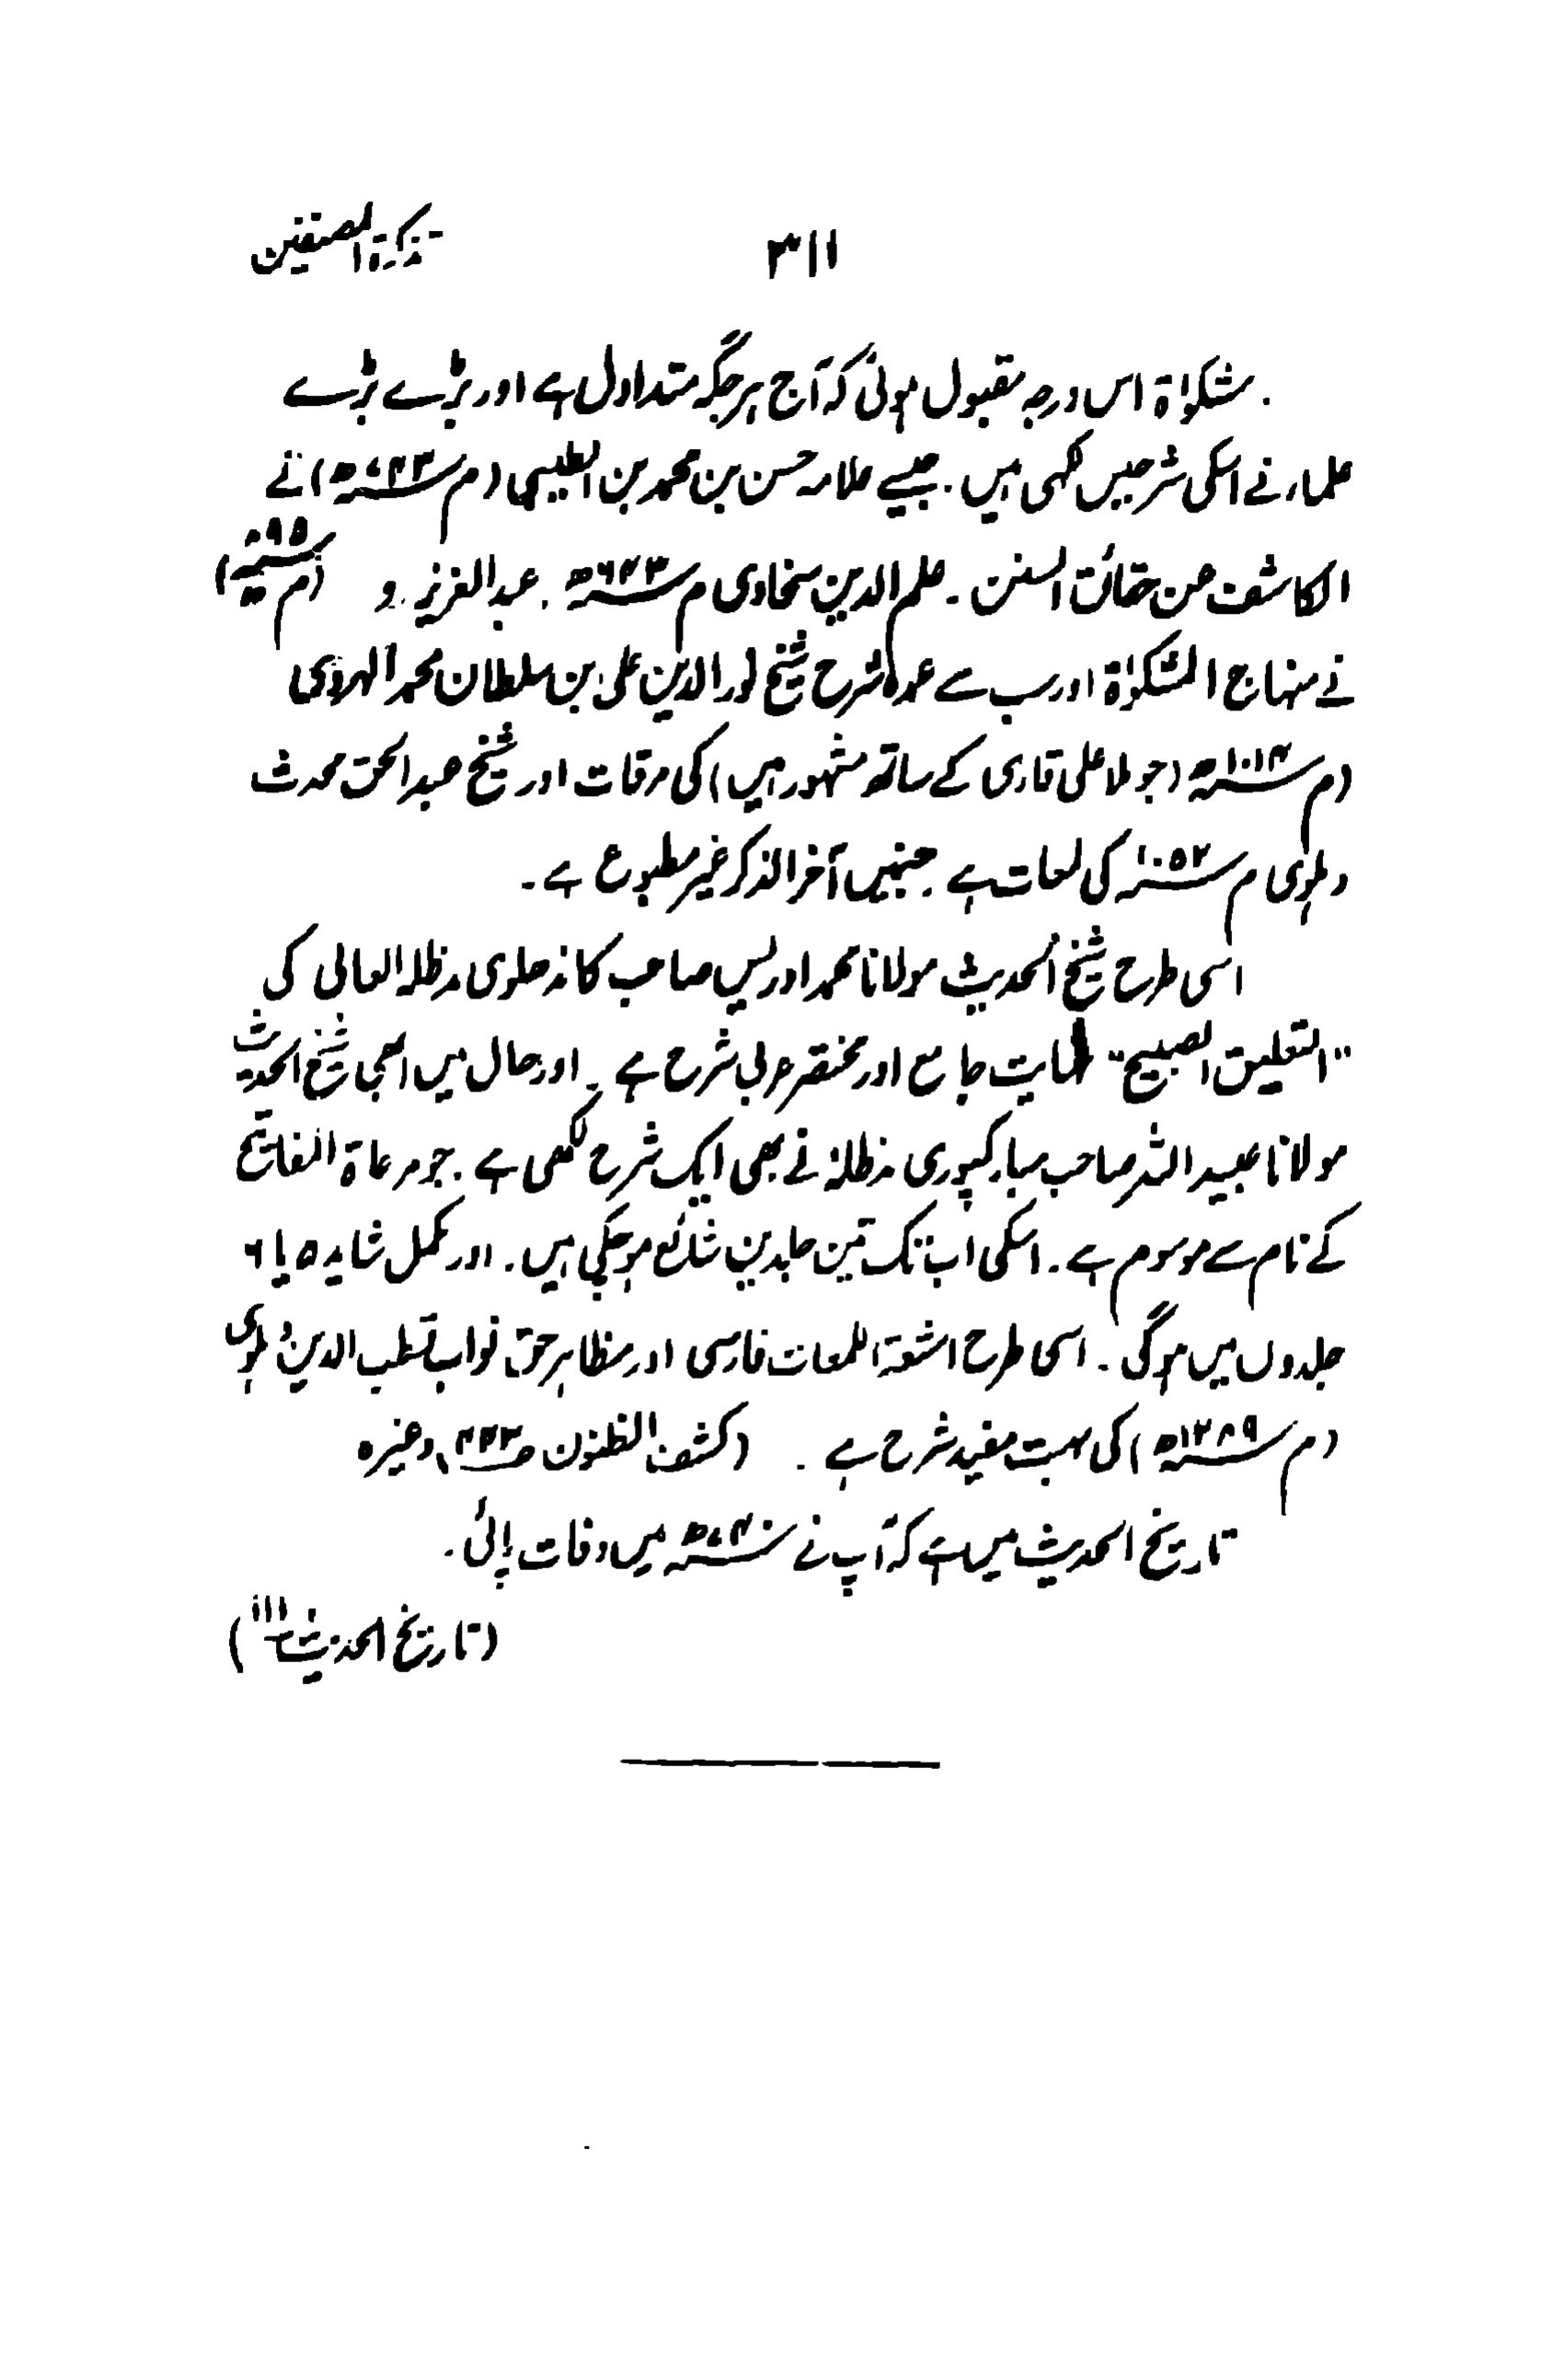 تذکرۃ المصنفین ۳۱۱
مشکواۃ اس درجہ مقبول ہوئی کہ آج ہر جگہ متداول ہے اور بڑے بڑے
علماء نے اسکی شرحیں لکھی ہیں۔ جیسے علامہ حسن بن محمد بن الطیبی (م ۷۴۳ھ) نے
الکاشف عن حقائق السنن۔ علم الدین سخاوی م ۶۴۳ھ۔ عبدالعزیز و (م
نے منہاج المشکواۃ اور سب سے عمدہ شرح شیخ نور الدین علی بن سلطان محمد الہروی
(م ۱۰۱۴ھ (جو ملا علی قاری کے ساتھ مشہور ہیں) کی مرقات اور شیخ عبدالحق محدث
دہلوی م ۱۰۵۲ھ کی لمعات ہے جنہیں آخر الذکر غیر مطبوع ہے۔
اسی طرح شیخ الحدیث مولانا محمد ادریس صاحب کاندھلوی مدظلہ العالی کی
"التعلیق الصبیح" نہایت جامع اور مختصر عربی شرح ہے۔ اور حال میں ابھی شیخ الحدیث
مولانا عبید اللہ صاحب مبارکپوری مدظلہٗ نے بھی ایک شرح لکھی ہے۔ جو مرعاۃ المفاتیح
کے نام سے موسوم ہے۔ اسکی اب تک تین جلدیں شائع ہو چکی ہیں۔ اور مکمل شاید ۵ یا ۶
جلدوں میں ہوگی۔ اسی طرح اشعۃ اللمعات فارسی اور مظاہر حق نواب قطب الدین دہلوی
(م ۱۲۸۹ھ) کی بہت مفید شرح ہے۔ (کشف الظنون وغیرہ
تاریخ الحدیث میں ہے کہ آپ نے ۷۴۰ھ میں وفات پائی۔
(تاریخ الحدیث ۱۱۱)